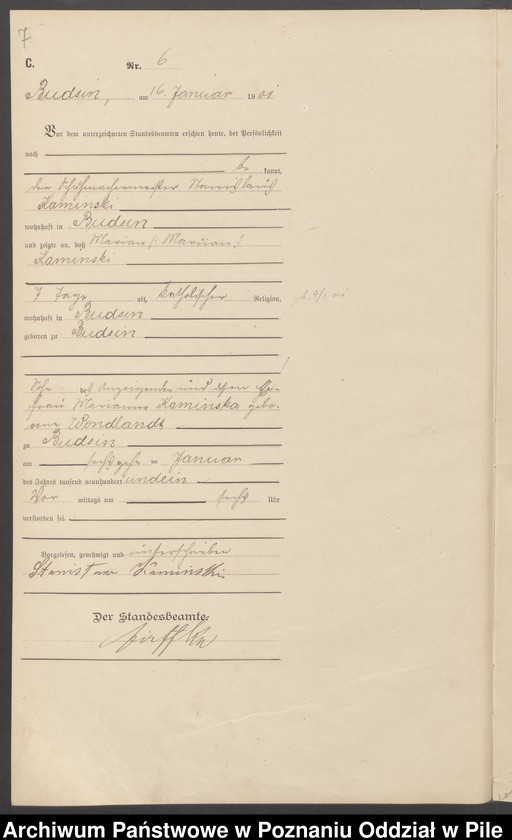 7
C. Nr. 6
Budsin, am 16. Januar 1901
Vor dem unterzeichneten Standesbeamten erschien heute, der Persönlichkeit
nach
be kannt,
der Schuhmachermeister Stanislaus
Kaminski
wohnhaft in Budsin
und zeigte an, daß Marian (: Maryan :)
Kaminski
7 Tage alt, katholischer Religion,
wohnhaft in Budsin
geboren zu Budsin
Sohn des Anzeigenden und seiner Ehe-
frau Marianna Kaminska gebo-
rene Wondlandt
zu Budsin
am sechzehn ten Januar
des Jahres tausend neunhundert undein
Vor mittags um sechs Uhr
verstorben sei.
Vorgelesen, genehmigt und unterschrieben
Stanislaus Kaminski
Der Standesbeamte.
Archiwum Państwowe w Poznaniu Oddział w Pile